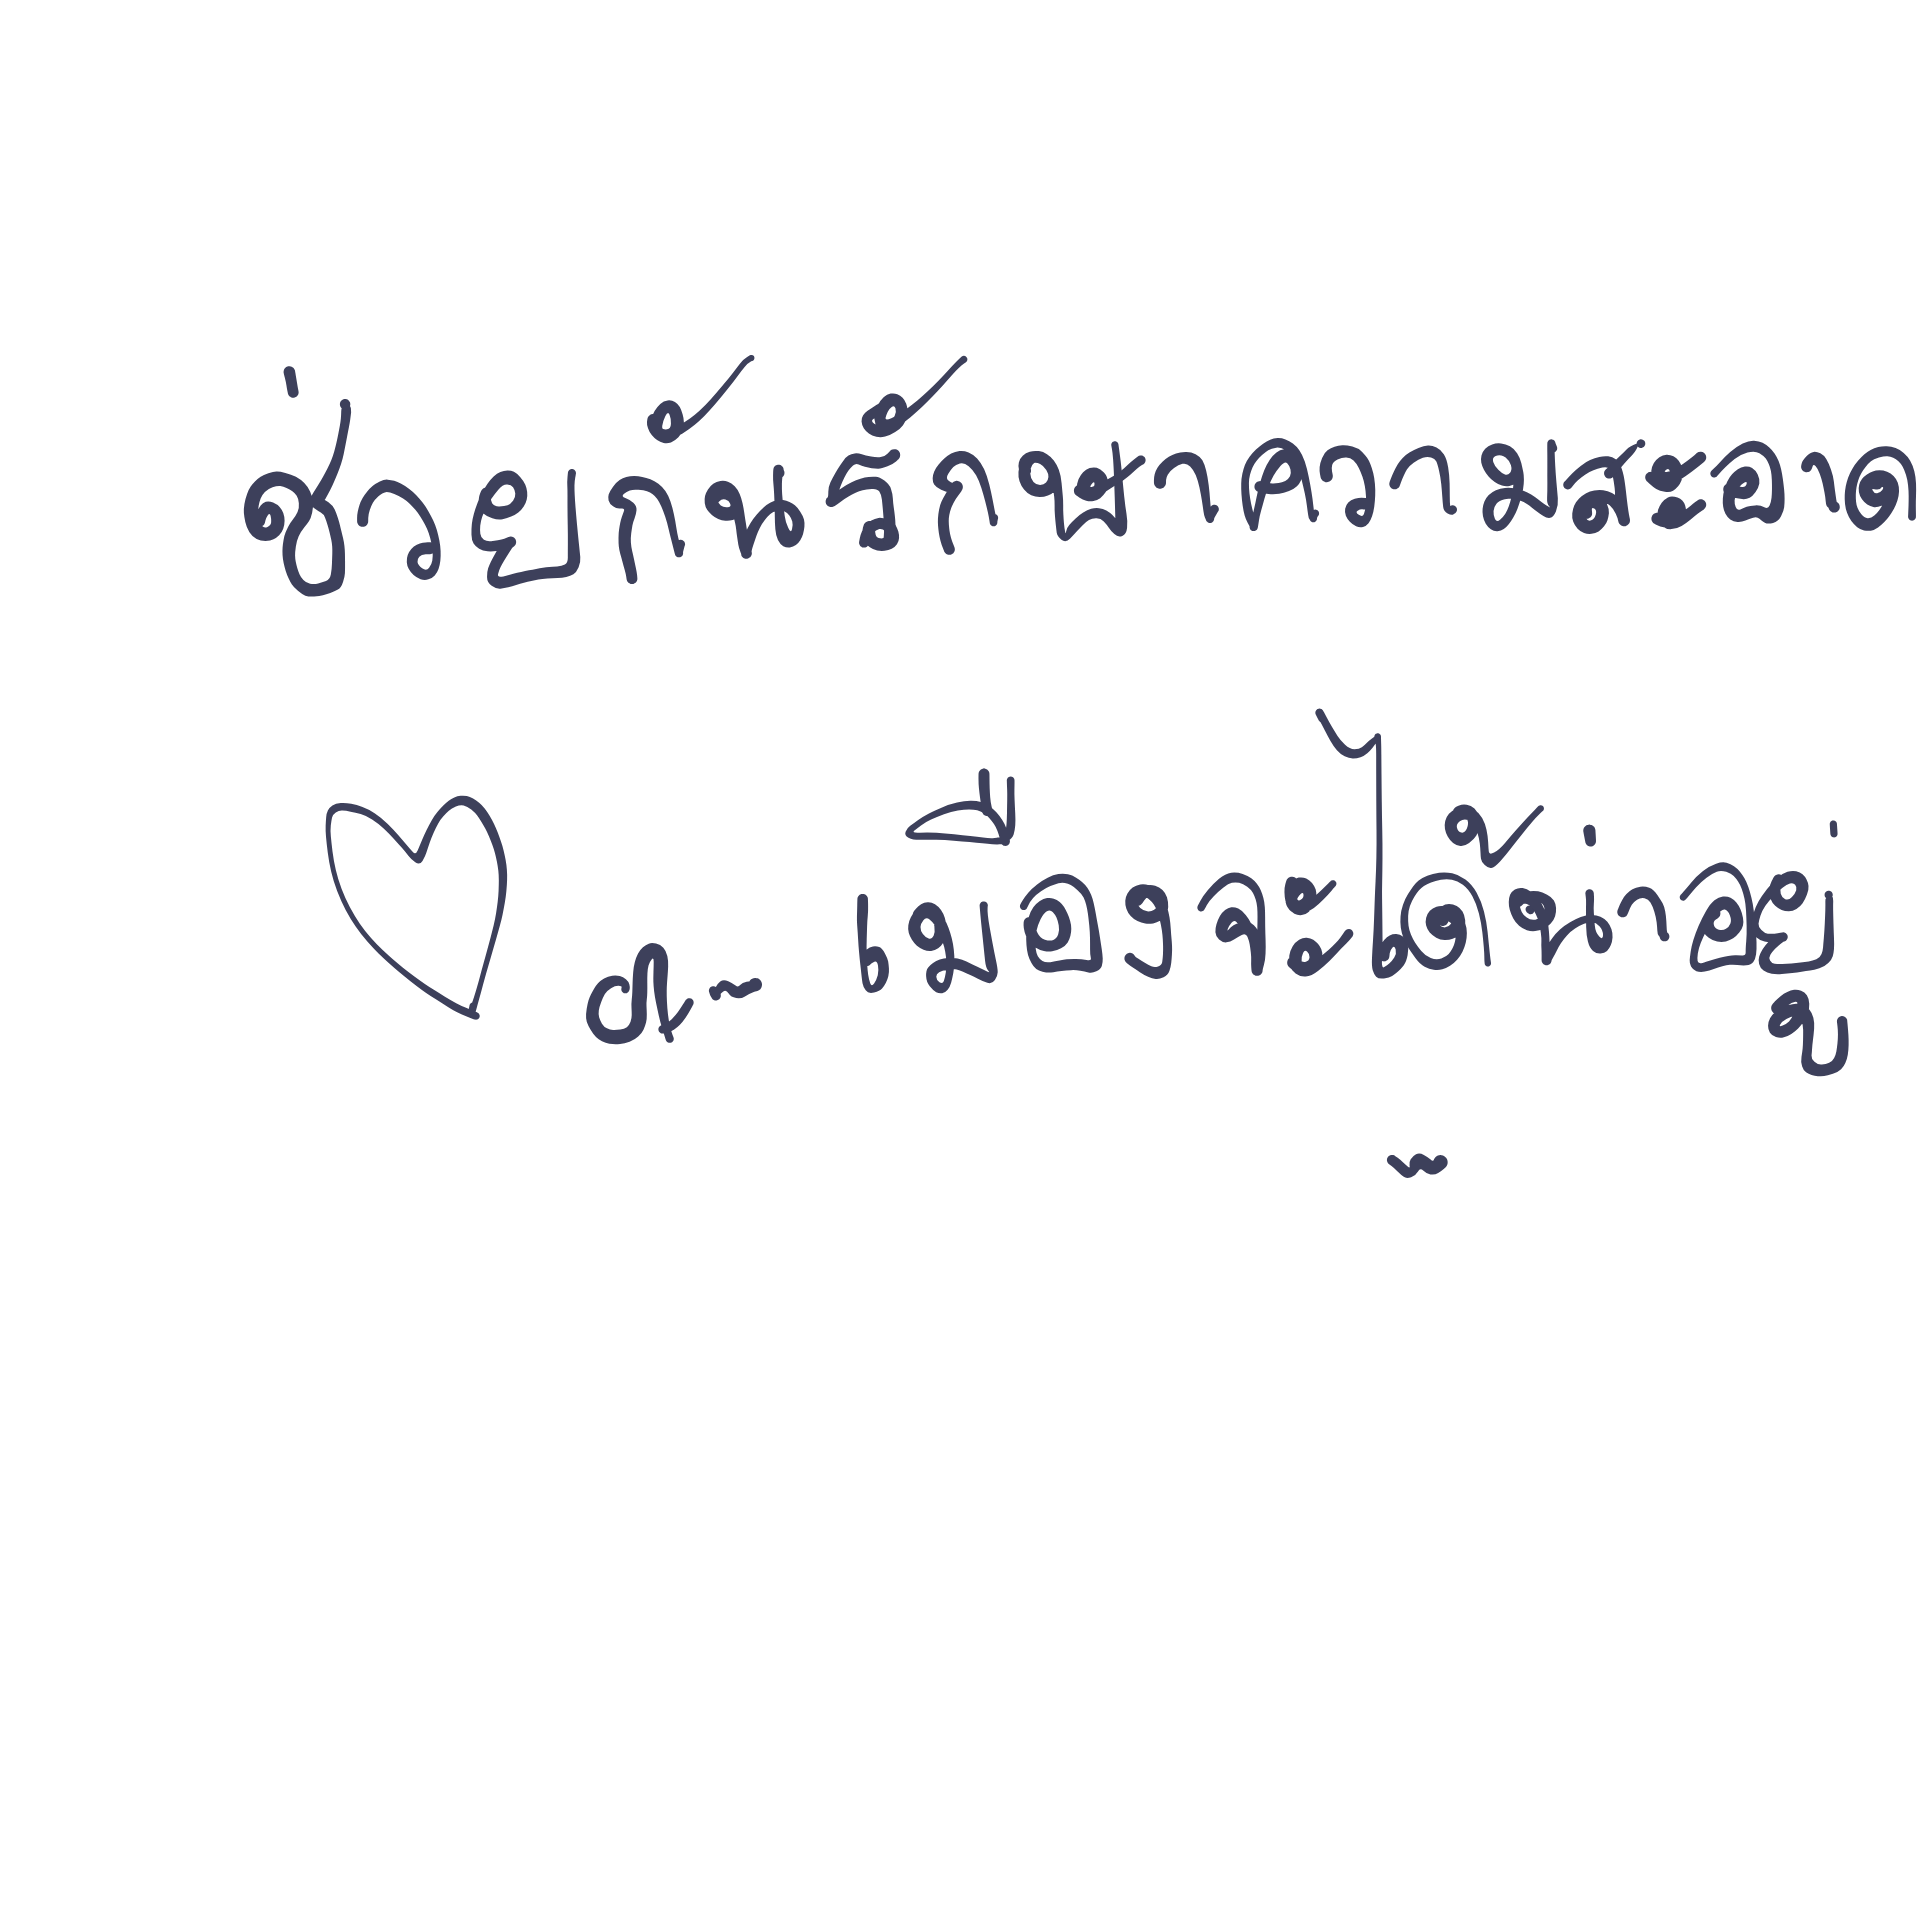 ช่วยกันรักษาความสะอาด
เมืองจะได้น่าอยู่